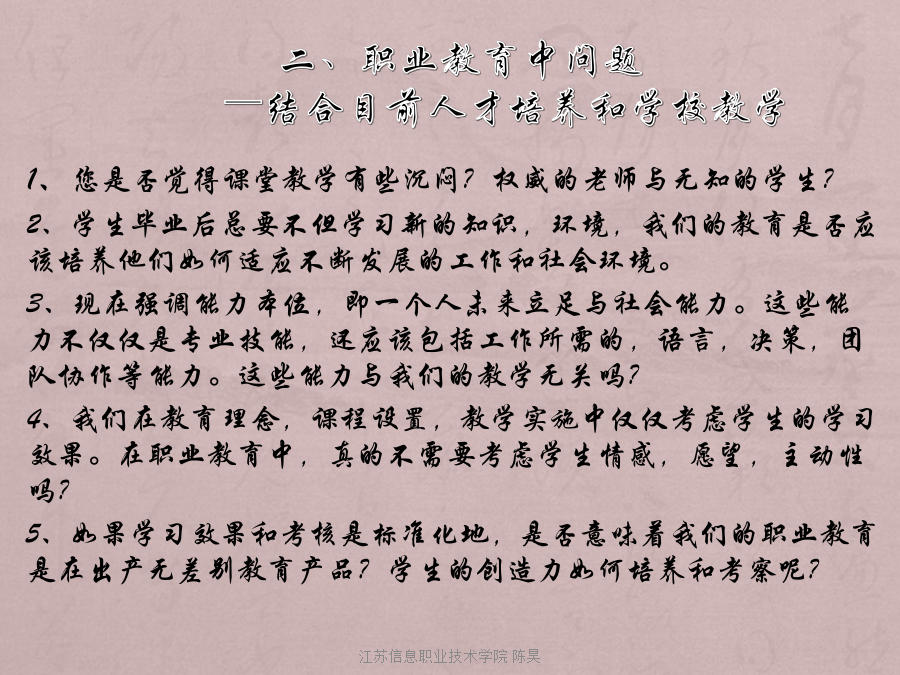 二、职业教育中问题
—结合目前人才培养和学校教学
1、您是否觉得课堂教学有些沉闷？权威的老师与无知的学生？
2、学生毕业后总要不但学习新的知识，环境，我们的教育是否应
该培养他们如何适应不断发展的工作和社会环境。
3、现在强调能力本位，即一个人未来立足与社会能力。这些能
力不仅仅是专业技能，还应该包括工作所需的，语言，决策，团
队协作等能力。这些能力与我们的教学无关吗？
4、我们在教育理念，课程设置，教学实施中仅仅考虑学生的学习
效果。在职业教育中，真的不需要考虑学生情感，愿望，主动性
吗？
5、如果学习效果和考核是标准化地，是否意味着我们的职业教育
是在出产无差别教育产品？学生的创造力如何培养和考察呢？
江苏信息职业技术学院 陈昊